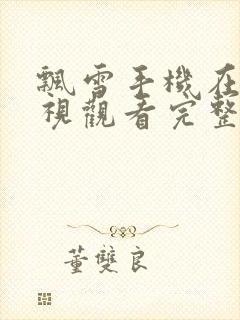 飄雪手機在
視觀看完整
董雙良